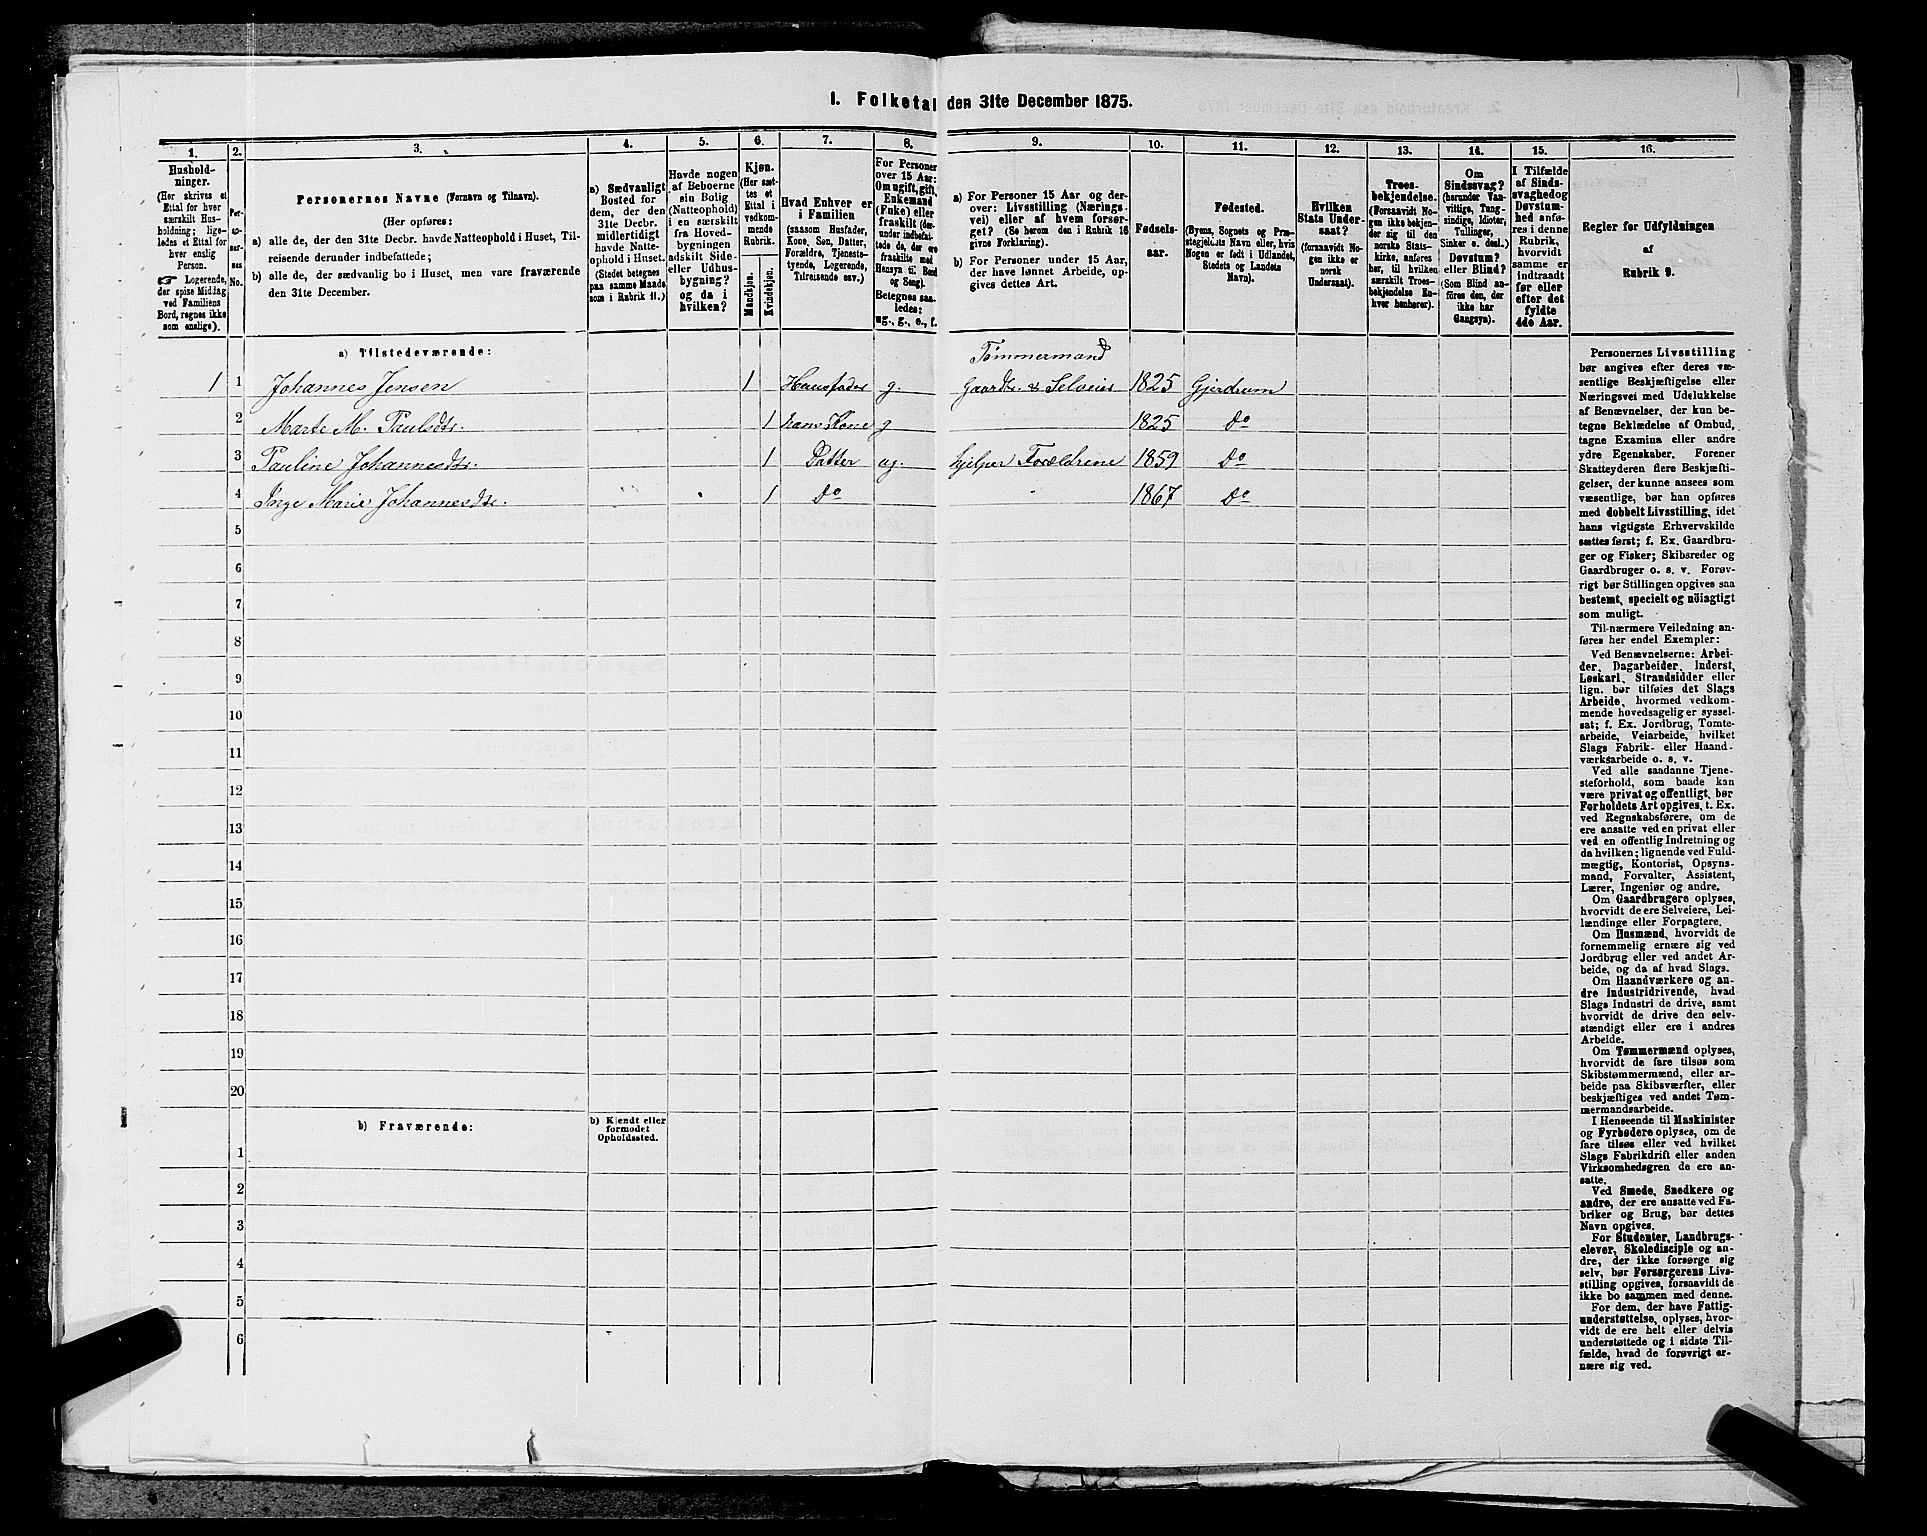 1. Folketal den 31te December 1875.
1. 2. 3. 4. 5. 6. 7. 8. 9. 10. 11. 12. 13. 14. 15. 16.
Husholdninger.
(Her skrives et
Ettal for hver
særskilt Husholdning;
ligeledes et Ettal for
hver enslig
Person.
☞ Logerende,
der spise Middag
ved Familiens
Bord, regnes ikke
som enslige).
Personernes No.
Personernes Navne (Fornavn og Tilnavn).
(Her opføres:
a) alle de, der den 31te Decbr. havde Natteophold i Huset, Tilreisende derunder indbefattede;
b) alle de, der sædvanlig bo i Huset, men vare fraværende
den 31te December.
a) Sædvanligt
Bosted for
dem, der den
31te Decbr.
midlertidigt
havde Natteophold i Huset.
(Stedet betegnes
paa samme Maade
som i Rubrik 11.)
Havde nogen
af Beboerne
sin Bolig
(Natteophold)
i en særskilt
fra Hovedbygningen
adskilt Side-
eller Udhusbygning?
og da i
hvilken?
Kjøn.
(Her sættes et
Ettal i
vedkommende
Rubrik.
Mandkjøn.
Kvindekjøn.
Hvad Enhver er
i Familien
(saasom Husfader,
Kone, Søn, Datter,
Forældre, Tjenestetyende, Logerende,
Tilreisende osv.)
For Personer
over 15 Aar:
Om ugift, gift,
Enkemand
(Enke) eller
fraskilt (derunder indbefattede de, der ere
fraskilte med
Hensyn til Bord
og Seng).
Betegnes saaledes:
ug., g., e., f.
a) For Personer 15 Aar og derover: Livsstilling (Næringsvei) eller af hvem forsørget? (Se herom den i Rubrik 16
givne Forklaring).
b) For Personer under 15 Aar,
der have lønnet Arbeide, opgives dettes Art.
Fødselsaar.
Fødested.
(Byens, Sognets og Præstegjeldets Navn eller, hvis
Nogen er født i Udlandet,
Stedets og Landets
Navn).
Hvilken
Stats Undersaat?
(forsaavidt Nogen ikke er
norsk
Undersaat).
Troesbekjendelse.
(Forsaavidt Nogen ikke bekjender sig til den
norske Statskirke, anføres
her, til hvilken
særskilt Troesbekjendelse Enhver henhører).
Om
Sindssvag?
(herunder Vanvittige, Tungsindige, Idioter,
Tullinger,
Sinker o. desl.)
Døvstum?
eller Blind?
(Som Blind anføres den, der
ikke har
Gangsyn).
I Tilfælde
af Sindssvaghed og
Døvstumhed anføres i denne
Rubrik,
hvorvidt
samme er
indtraadt
før eller
efter det
fyldte
4de Aar.
Regler for Udfyldningen
af
Rubrik 9.
a) Tilstedeværende:
Tømmermand
1 1 Johannes Jensen 1 Huusfader g. Gaardbr. & Selveier 1825 Gjerdrum
2 Marte M. Paulsdtr. 1 hans Kone g 1825 Do
3 Pauline Johannesdtr. 1 Datter ug. hjelper Forældrene 1859 Do
4 Inge Marie Johannesdtr. 1 Do 1867 Do
5
6
7
8
9
10
11
12
13
14
15
16
17
18
19
20
b) Fraværende:
b) Kjendt eller
formodet
Opholdssted.
1
2
3
4
5
6
Personernes Livsstilling
bør angives efter deres væsentlige Beskjæftigelse eller
Næringsvei med Udelukkelse
af Benævnelser, der kun betegne Beklædelse af Ombud,
tagne Examina eller andre
ydre Egenskaber. Forener
Skatteyderen flere Beskjæftigelser, der kunne ansees som
væsentlige, bør han opføres
med dobbelt Livsstilling, idet
hans vigtigste Erhvervskilde
sættes først; f. Ex. Gaardbruger og Fisker; Skibsreder og
Gaardbruger o. s. v. Forøvrigt bør Stillingen opgives saa
bestemt, specielt og nöiagtigt
som muligt.
Til nærmere Veiledning anføres her endel Exempler:
Ved Benævnelserne: Arbeider, Dagarbeider, Inderst,
Løskarl, Strandsidder eller
lign. bør tilføies det Slags
Arbeide, hvormed vedkommende hovedsagelig er sysselsat; f. Ex. Jordbrug, Tomtearbeide, Veiarbeide, hvilket
Slags Fabrik- eller Haandværksarbeide o. s. v.
Ved alle saadanne Tjenesteforhold, som baade kan
være privat og offentligt, bør
Forholdets Art opgives, t. Ex.
ved Regnskabsførere, om de
ere ansatte ved en privat eller
ved en offentlig Indretning og
da hvilken; lignende ved Fuldmægtig, Kontorist, Opsynsmand, Forvalter, Assistent,
Lærer, Ingeniør og andre.
Om Gaardbrugere oplyses,
hvorvidt de ere Selveiere, Leilændinge eller Forpagtere.
Om Husmænd, hvorvidt de
fornemmelig ernære sig ved
Jordbrug eller ved andet Arbeide, og da af hvad Slags.
Om Haandværkere og andre industridrivende, hvad
Slags Industri de drive, samt
hvorvidt de drive den selvstændigt eller ere i andres
Arbeide.
Om Tømmermænd oplyses,
hvorvidt de fare tilsøs som
Skibstømmermænd, eller arbeide paa Skibsværfter, eller
beskjæftiges ved andet Tømmermandsarbeide.
I Henseende til Maskinister
og Fyrbødere oplyses, om de
fare tilsøs eller ved hvilket
Slags Fabrikdrift eller anden
Virksomhedsgren de ere ansatte.
Ved Smede, Snedkere og
andre, der ere ansatte ved Fabriker og Brug, bør dettes
Navn opgives.
For Studenter, Landbrugselever, Skoledisciple og andre, der ikke forsørge sig
selv, bør Forsørgerens Livsstilling opgives, forsaavidt de
ikke bo sammen med denne.
For dem, der have Fattigunderstøttelse, oplyses, hvorvidt de ere helt eller delvis
understøttede og i sidste Tilfælde, hvad de forøvrigt ernære sig ved.